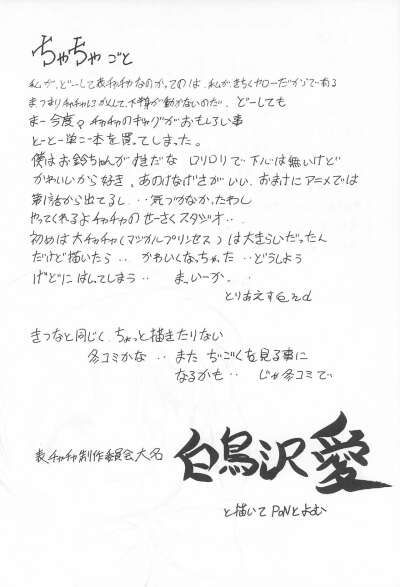 ちゃちゃ ごと
私が、どーして表チャチャなのかってのは、私がきちくヤローだからである
まつまりチャチャにかんして、下半身が動かないのだ、どーしても
まー今度はチャチャのギャグがおもしろい事
とーとー単こー本を買ってしまった。
僕はお鈴ちゃんが好きだな ロリロリで下心は無いけど
かわいいから好き、あのけなげさがいい、おまけにアニメでは
第1話から出てるし‥気づかなかったわし
やってくれるよチャチャのせーさくスタジオ‥
初めは大チャチャ(マジカルプリンセス)は大きらいだったん
だけど描いたら‥かわいくなっちゃた‥どうしよう
げどにはしてしまう‥ ま、いーか‥
とりあえずEnd
きつなと同じく、ちゃっと描きたりない
冬コミかな‥ また ぢごくを見る事に
なるかも‥ じゃ冬コミで
表チャチャ制作委員会大名 白鳥沢愛
と描いて PONとよむ